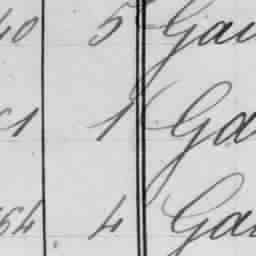 40 5 Gau
61 1 Ga
64 4 Gau